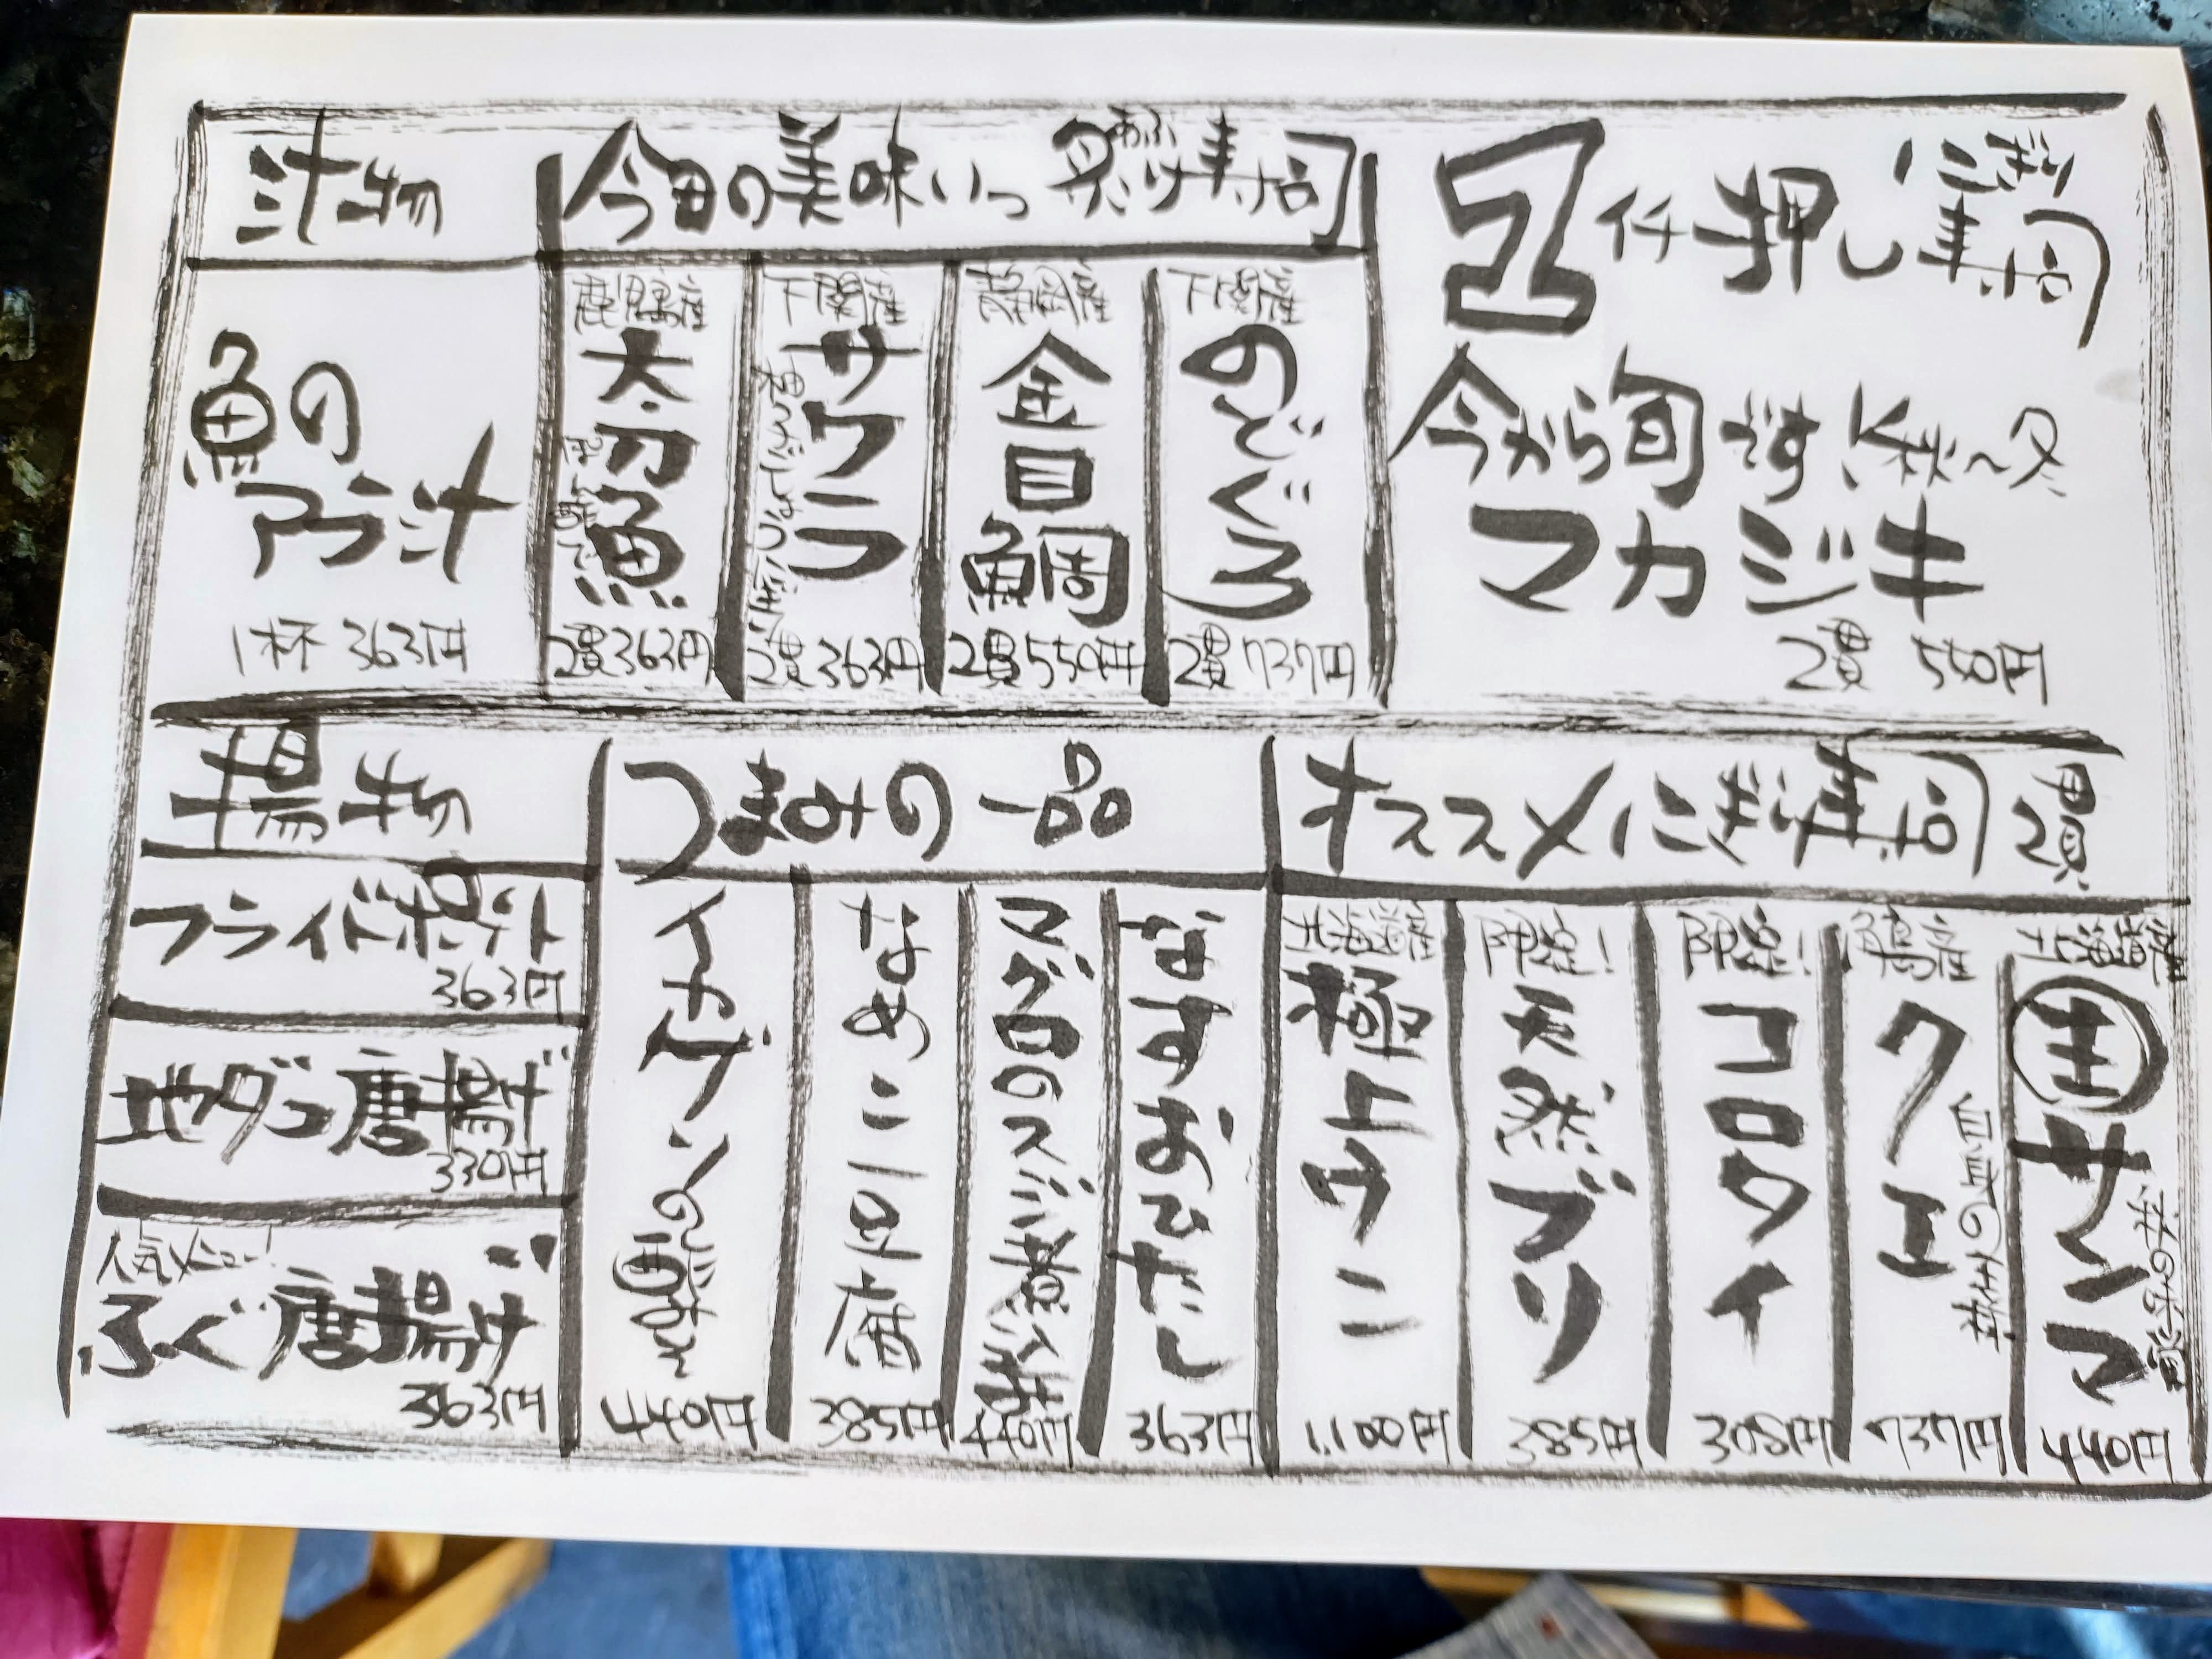 汁物
魚の
アラ汁
1杯 363円
今日の美味いっ 炙り寿司
あぶ
鹿児島産
太刀魚
ぽん酢で
2貫363円
下関産
サワラ
2貫363円
静岡産
金目鯛
2貫550円
下関産
のどぐろ
2貫737円
仕押しにぎり寿司
今から旬です 秋~冬
マカジキ
2貫 550円
揚物
フライドポテト
363円
地ダコ唐揚げ
330円
人気メニュー!
ふぐ唐揚げ
363円
つまみの一品
イカゲソの
440円
なめこ豆腐
385円
マグロのスジ煮込み
440円
なすおひたし
363円
オススメにぎり寿司 2貫
北海道産
極上ウニ
1,100円
限定!
天然ブリ
385円
限定!
コロタイ
308円
クエ
自慢の仕事
737円
北海道産
生サンマ
秋の味覚
440円